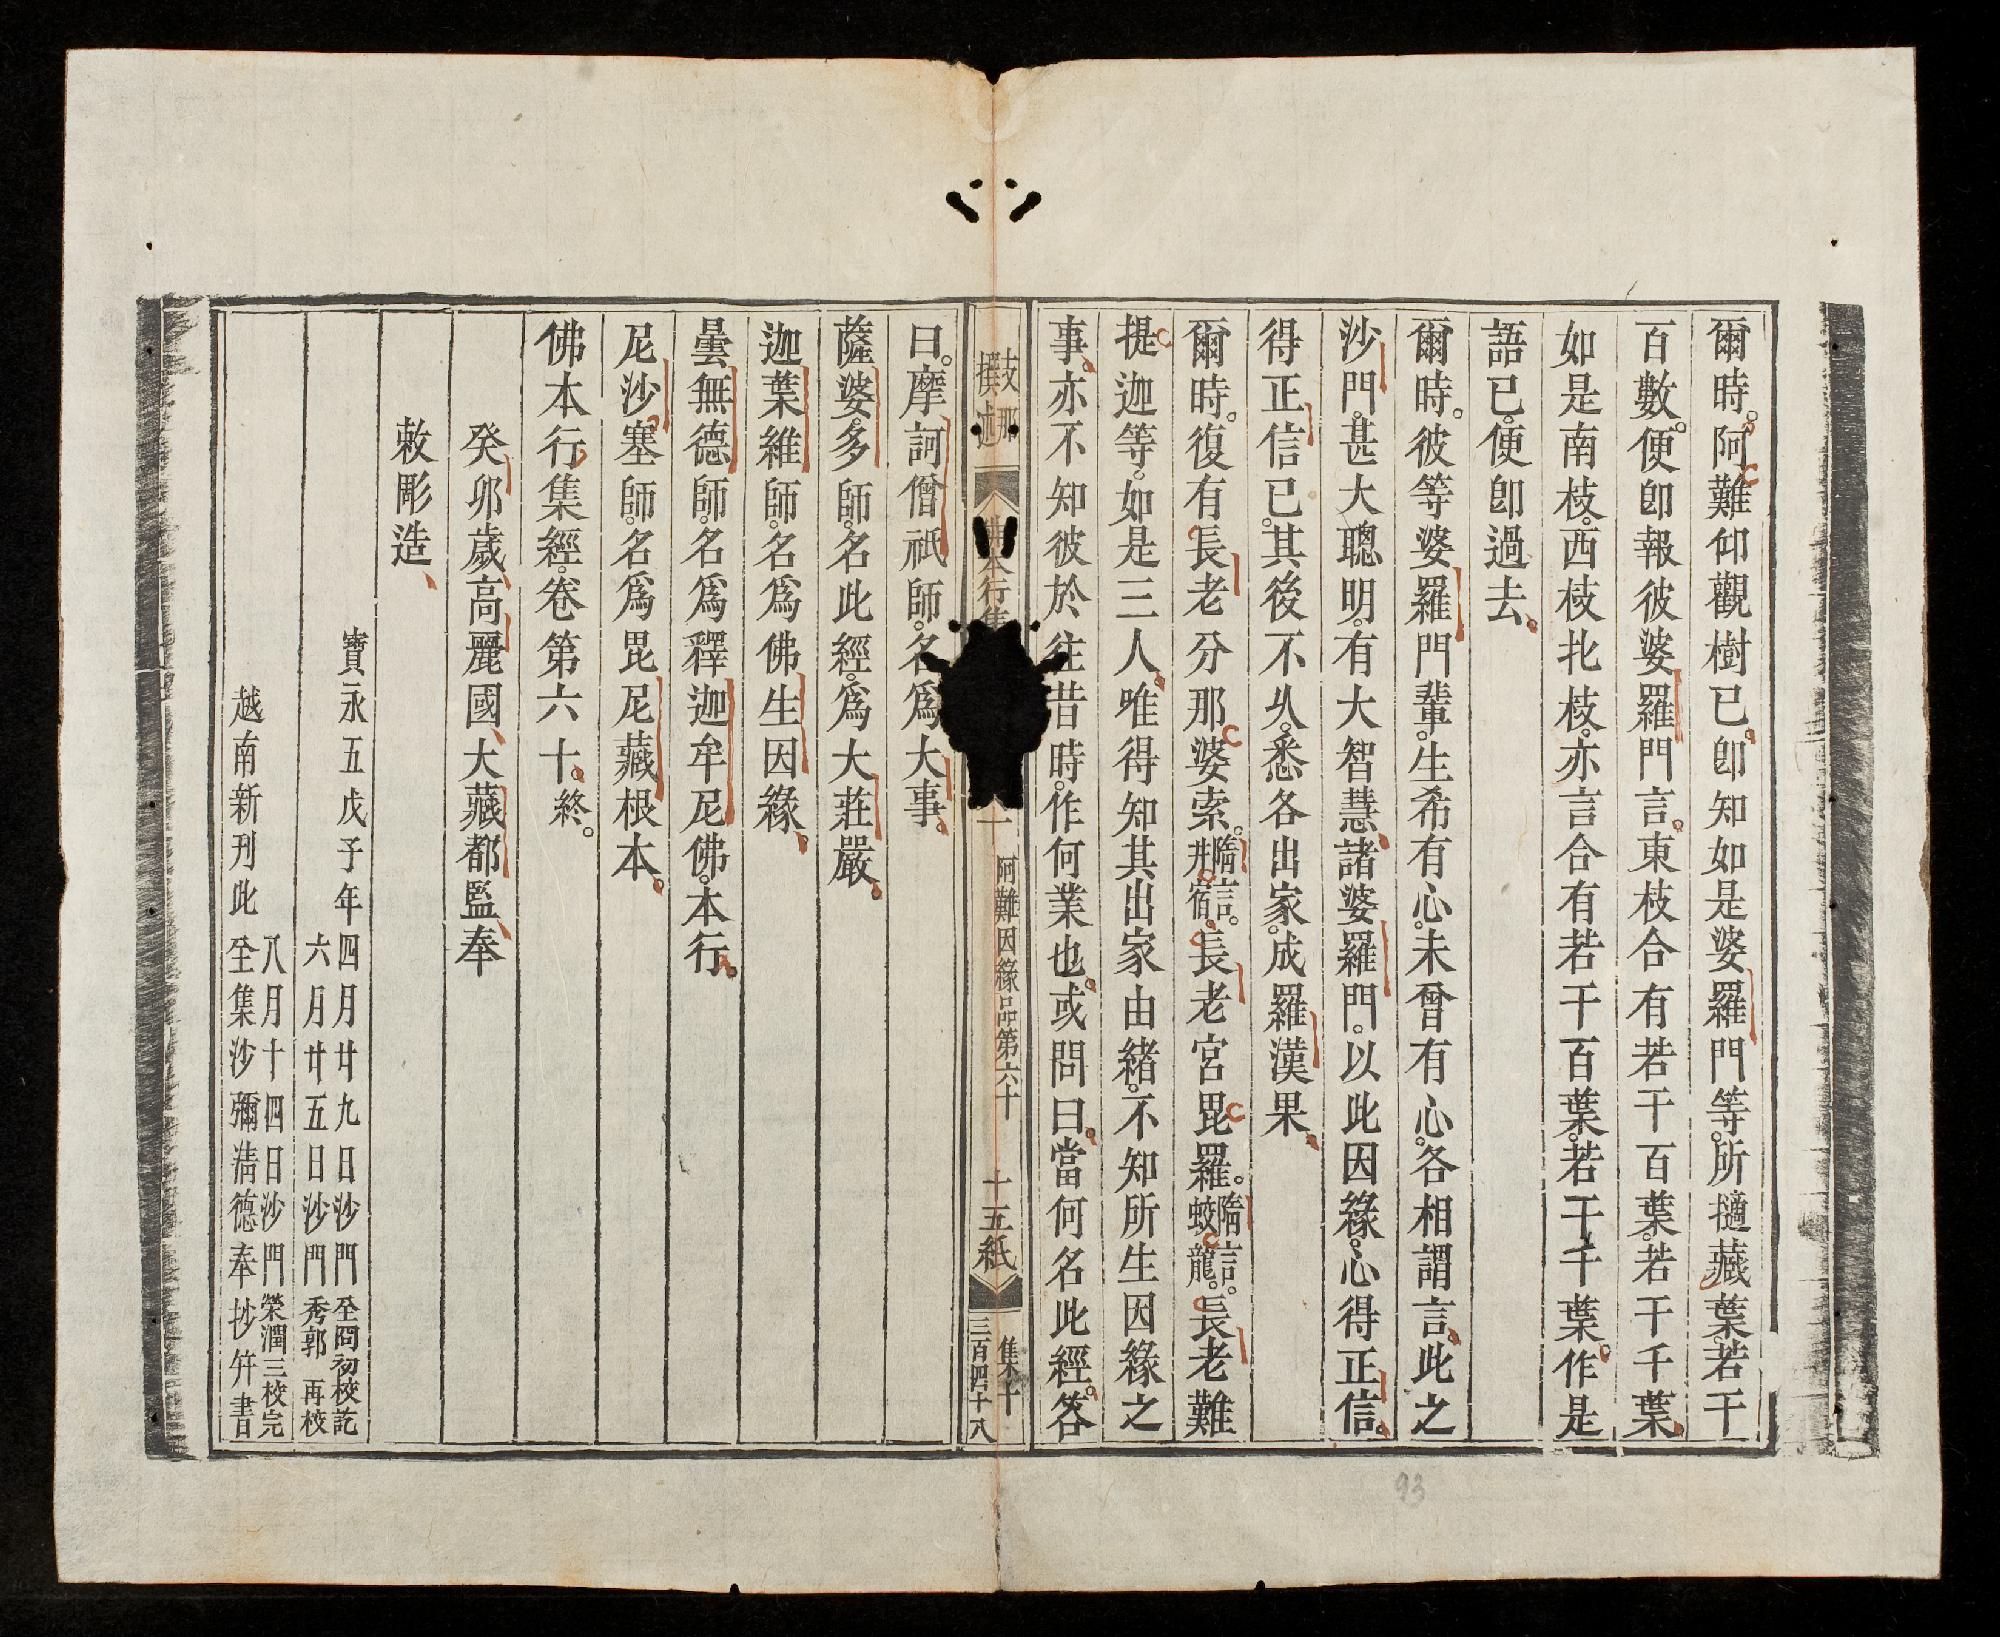 爾時。阿難仰觀樹已。卽知如是婆羅門等。所擿藏葉。若干
百數。便卽報彼婆羅門言。東枝合有若干百葉。若干千葉。
如是南枝。西枝北枝。亦言合有若干百葉。若干千葉。作是
語已。便卽過去。
爾時。彼等婆羅門輩。生希有心。未曾有心。各相謂言。此之
沙門。甚大聰明。有大智慧。諸婆羅門。以此因緣。心得正信。
得正信已。其後不久。悉各出家。成羅漢果。
爾時。復有長老分那婆索。隋言。井宿。長老宮毘羅。隋言。蛟龍。長老難
提迦等。如是三人。唯得知其出家由緒。不知所生因緣之
事。亦不知彼於往昔時。作何業也。或問曰。當何名此經。答
支那
撰述
佛本行集
一
阿難因緣品第六十
十五紙
集十
三百四十八
曰。摩訶僧祇師。名爲大事。
薩婆多師。名此經。爲大莊嚴。
迦葉維師。名爲佛生因緣。
曇無德師。名爲釋迦牟尼佛。本行。
尼沙塞師。名爲毘尼藏根本。
佛本行集經。卷第六十。終。
癸卯歲、高麗國、大藏都監、奉
敕彫造、
寶永五戊子年四月廿九日沙門㘴冏初校訖
六月廿五日沙門秀郭再校
八月十四日沙門榮潤三校完
越南新刊此㘴集沙彌淸德奉抄幷書